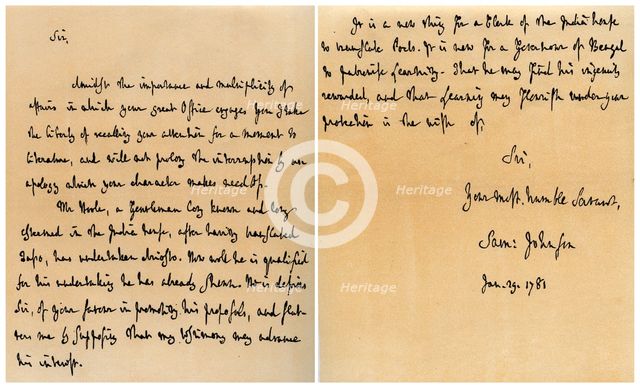 Sir,
Amidst the importance and multiplicity of
affairs in which your great Office engages you I take
the liberty of recalling your attention for a moment to
literature, and will not prolong the interruption by an
apology which your character makes needless.
Mr Hoole, a Gentleman long known and long
esteemed in the India house, after having translated
Tasso, has undertaken Ariosto. How well he is qualified
for his undertaking he has already shown. He is desirous
Sir, of your favour in promoting his proposals, and flat-
ters me by supposing that my testimony may advance
his interest.
It is a new thing for a Clerk of the India house
to translate Poets. It is new for a Governour of Bengal
to patronise learning. That he may find his ingenuity
rewarded, and that learning may flourish under your
protection is the wish of,
Sir,
Your most humble Servant,
Sam: Johnson
Jan. 29. 1781
Heritage Heritage
Heritage Heritage
Heritage Heritage
C